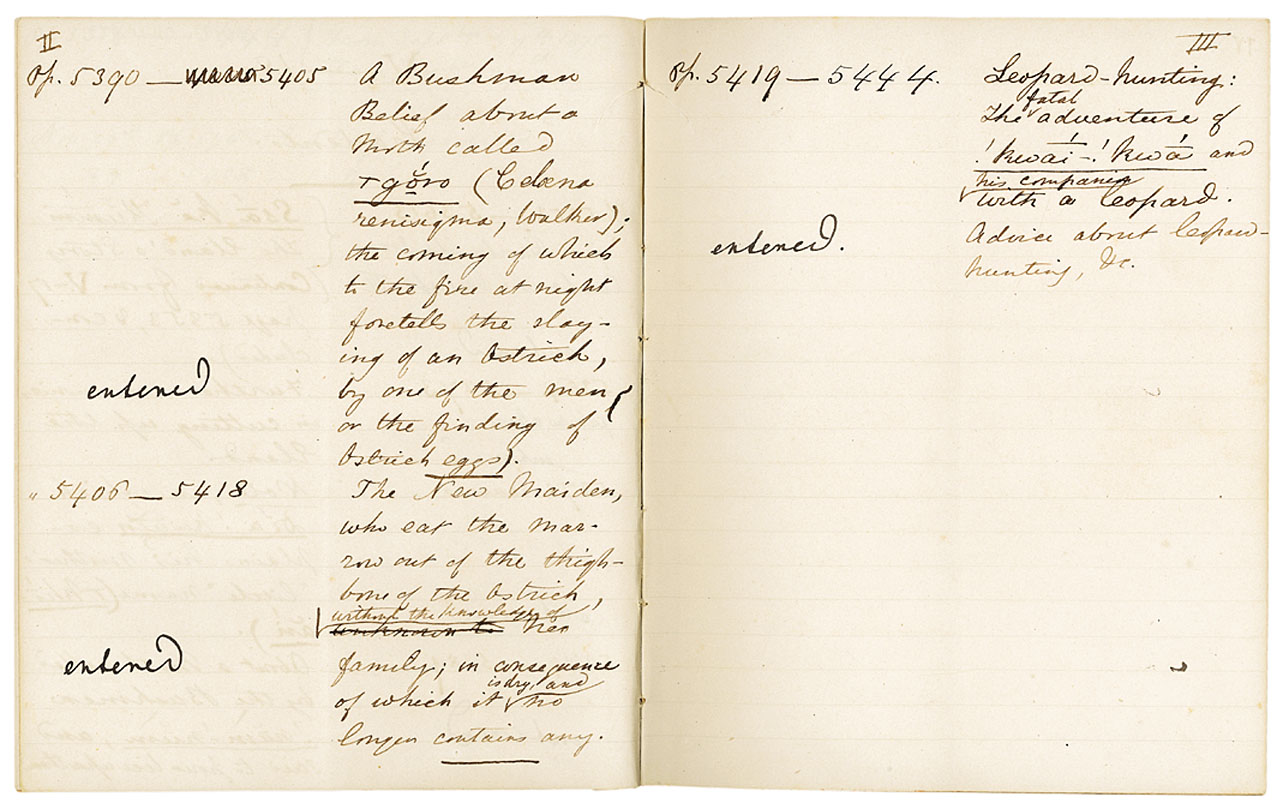 II
pp. 5390 — 5405 A Bushman
Belief about a
Moth called
ǂgŏ́ro (Celæna
renisigma, Walker);
the coming of which
to the fire at night
foretells the slay-
ing of an Ostrich,
by one of the men (
or the finding of
Ostrich eggs).
entered
" 5406 — 5418 The New Maiden,
who eat the mar-
row out of the thigh-
bone of the Ostrich,
without the knowledge of
unknown to her
family; in consequence
is dry, and
of which it no
longer contains any.
entered
III
pp. 5419 — 5444. Leopard-hunting:
fatal
The adventure of
!kwaí-!kwā́ and
his companion
with a leopard.
Advice about leopard-
hunting, &c.
entered.